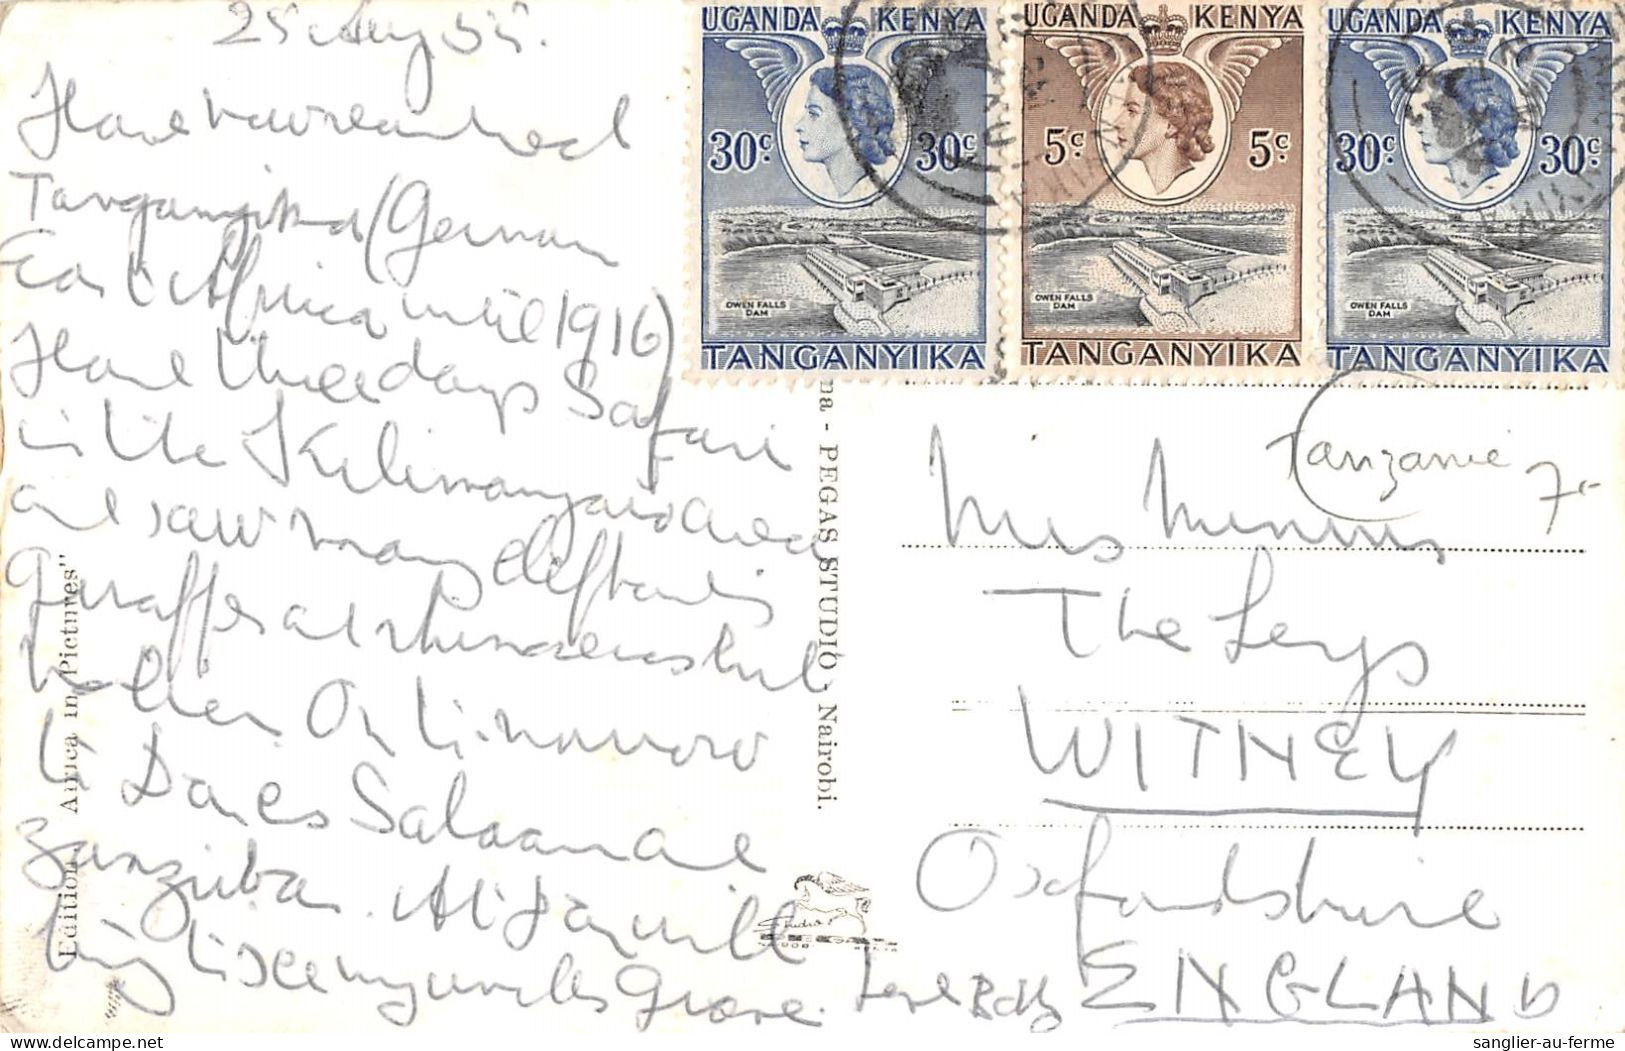 25 Aug 55.
Have now reached
Tanganyika (German
East Africa until 1916)
Have three days Safari
in the Kilimanjaro area
and saw many elephants
Giraffes and rhinoceros but
no lion. On tomorrow
to Dar es Salaam and
Zanzibar. At Tanga will
try to see my uncles Grave.
Love
UGANDA KENYA
30c 30c
OWEN FALLS
DAM
TANGANYIKA
UGANDA KENYA
5c 5c
OWEN FALLS
DAM
TANGANYIKA
UGANDA KENYA
30c 30c
OWEN FALLS
DAM
TANGANYIKA
Tanzanie
7-
The Leys
WITNEY
Oxfordshire
ENGLAND
Edition "Africa in Pictures"
PEGAS STUDIO, Nairobi.
Studio
sanglier-au-ferme